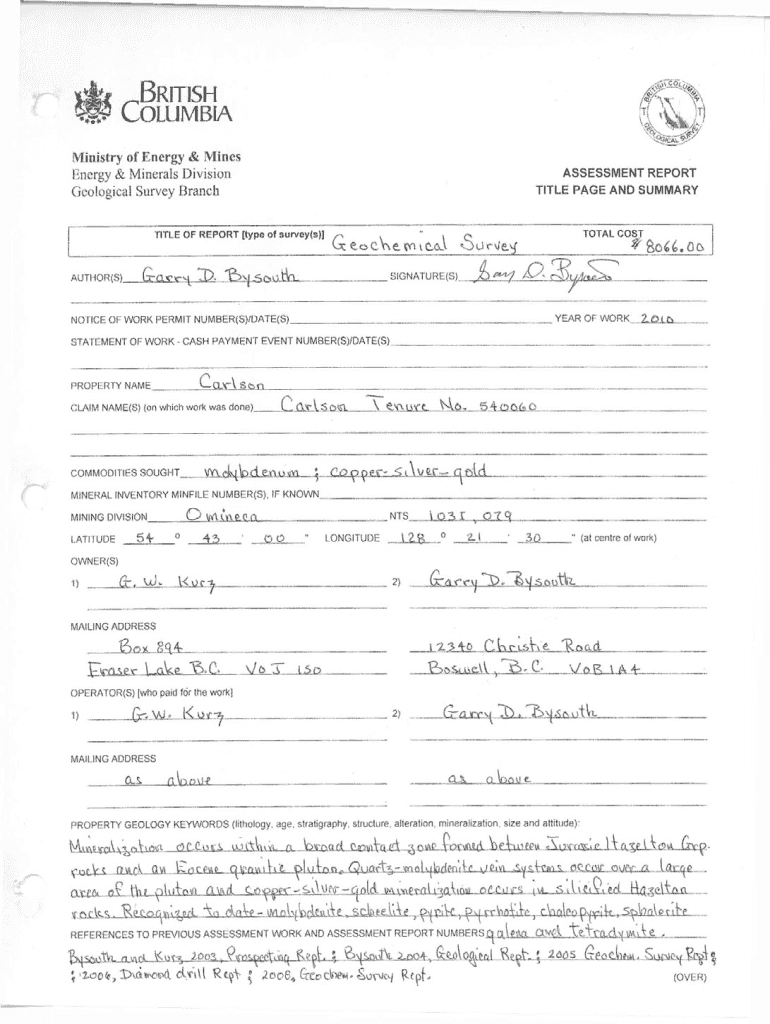 BRITISH
COLUMBIA
BRITISH COLUMBIA
GEOLOGICAL SURVEY
Ministry of Energy & Mines
Energy & Minerals Division
Geological Survey Branch
ASSESSMENT REPORT
TITLE PAGE AND SUMMARY
TITLE OF REPORT [type of survey(s)] Geochemical Survey TOTAL COST $ 8066.00
AUTHOR(S) Garry D. Bysouth SIGNATURE(S) Garry D. Bysouth
NOTICE OF WORK PERMIT NUMBER(S)/DATE(S) YEAR OF WORK 2010
STATEMENT OF WORK - CASH PAYMENT EVENT NUMBER(S)/DATE(S)
PROPERTY NAME Carlson
CLAIM NAME(S) (on which work was done) Carlson Tenure No. 540060
COMMODITIES SOUGHT molybdenum ; copper-silver-gold
MINERAL INVENTORY MINFILE NUMBER(S), IF KNOWN
MINING DIVISION Omineca NTS 103I, 079
LATITUDE 54 ° 43 ' 00 " LONGITUDE 128 ° 21 ' 30 " (at centre of work)
OWNER(S)
1) G. W. Kurz 2) Garry D. Bysouth
MAILING ADDRESS
Box 894 12340 Christie Road
Fraser Lake B.C. V0J 1S0 Boswell, B.C. V0B 1A4
OPERATOR(S) [who paid for the work]
1) G. W. Kurz 2) Garry D. Bysouth
MAILING ADDRESS
as above as above
PROPERTY GEOLOGY KEYWORDS (lithology, age, stratigraphy, structure, alteration, mineralization, size and attitude):
Mineralization occurs within a broad contact zone formed between Jurassic Hazelton Grp.
rocks and an Eocene granitic pluton. Quartz-molybdenite vein systems occur over a large
area of the pluton and copper-silver-gold mineralization occurs in silicified Hazelton
rocks. Recognized to date - molybdenite, scheelite, pyrite, pyrrhotite, chalcopyrite, sphalerite
REFERENCES TO PREVIOUS ASSESSMENT WORK AND ASSESSMENT REPORT NUMBERS galena and tetradymite.
Bysouth and Kurz 2003, Prospecting Rept. ; Bysouth 2004, Geological Rept. ; 2005 Geochem. Survey Rept ;
; 2006, Diamond drill Rept ; 2008, Geochem. Survey Rept.
(OVER)